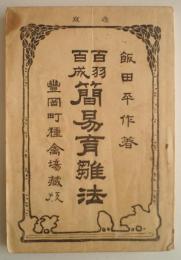 飯田平作著
百羽
百成
簡易育雛法
豊岡町種禽場蔵版